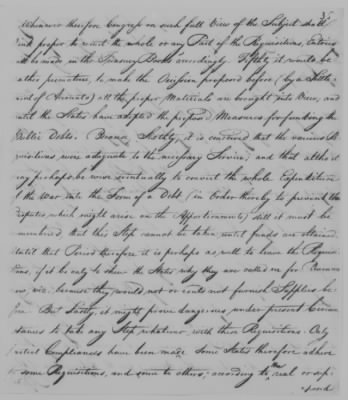 Whenever therefore Congress on such full View of the Subject shall
find proper to remit the whole or any Part of the Requisitions, Entries
will be made in the Treasury Books accordingly. Fifthly it would be
rather premature, to make the Decision proposed before (by a Settle
ment of Accounts) all the proper Materials are brought into View, and
until the States have adopted the proposed Measures for funding the
Public Debts. Because Sixthly, it is conceived that the various Re
quisitions were adequate to the necessary Service; and that altho it
may perhaps be wise eventually to convert the whole Expenditure
of the War into the Form of a Debt (in Order thereby to prevent the
Disputes which might arise on the Apportionments) still it must be
remembered that this Step cannot be taken until funds are obtained.
Until that Period therefore it is perhaps as well to leave the Requisi
tions, if it be only to shew the States why they are called on for Revenue
now, viz. because they would not or could not furnish Supplies be
fore. But Lastly, it might prove dangerous under present Circum
stances to take any Step whatever with these Requisitions. Only
partial Compliances have been made. Some States therefore adhere
to some Requisitions, and some to others; according to the real or sup
posed